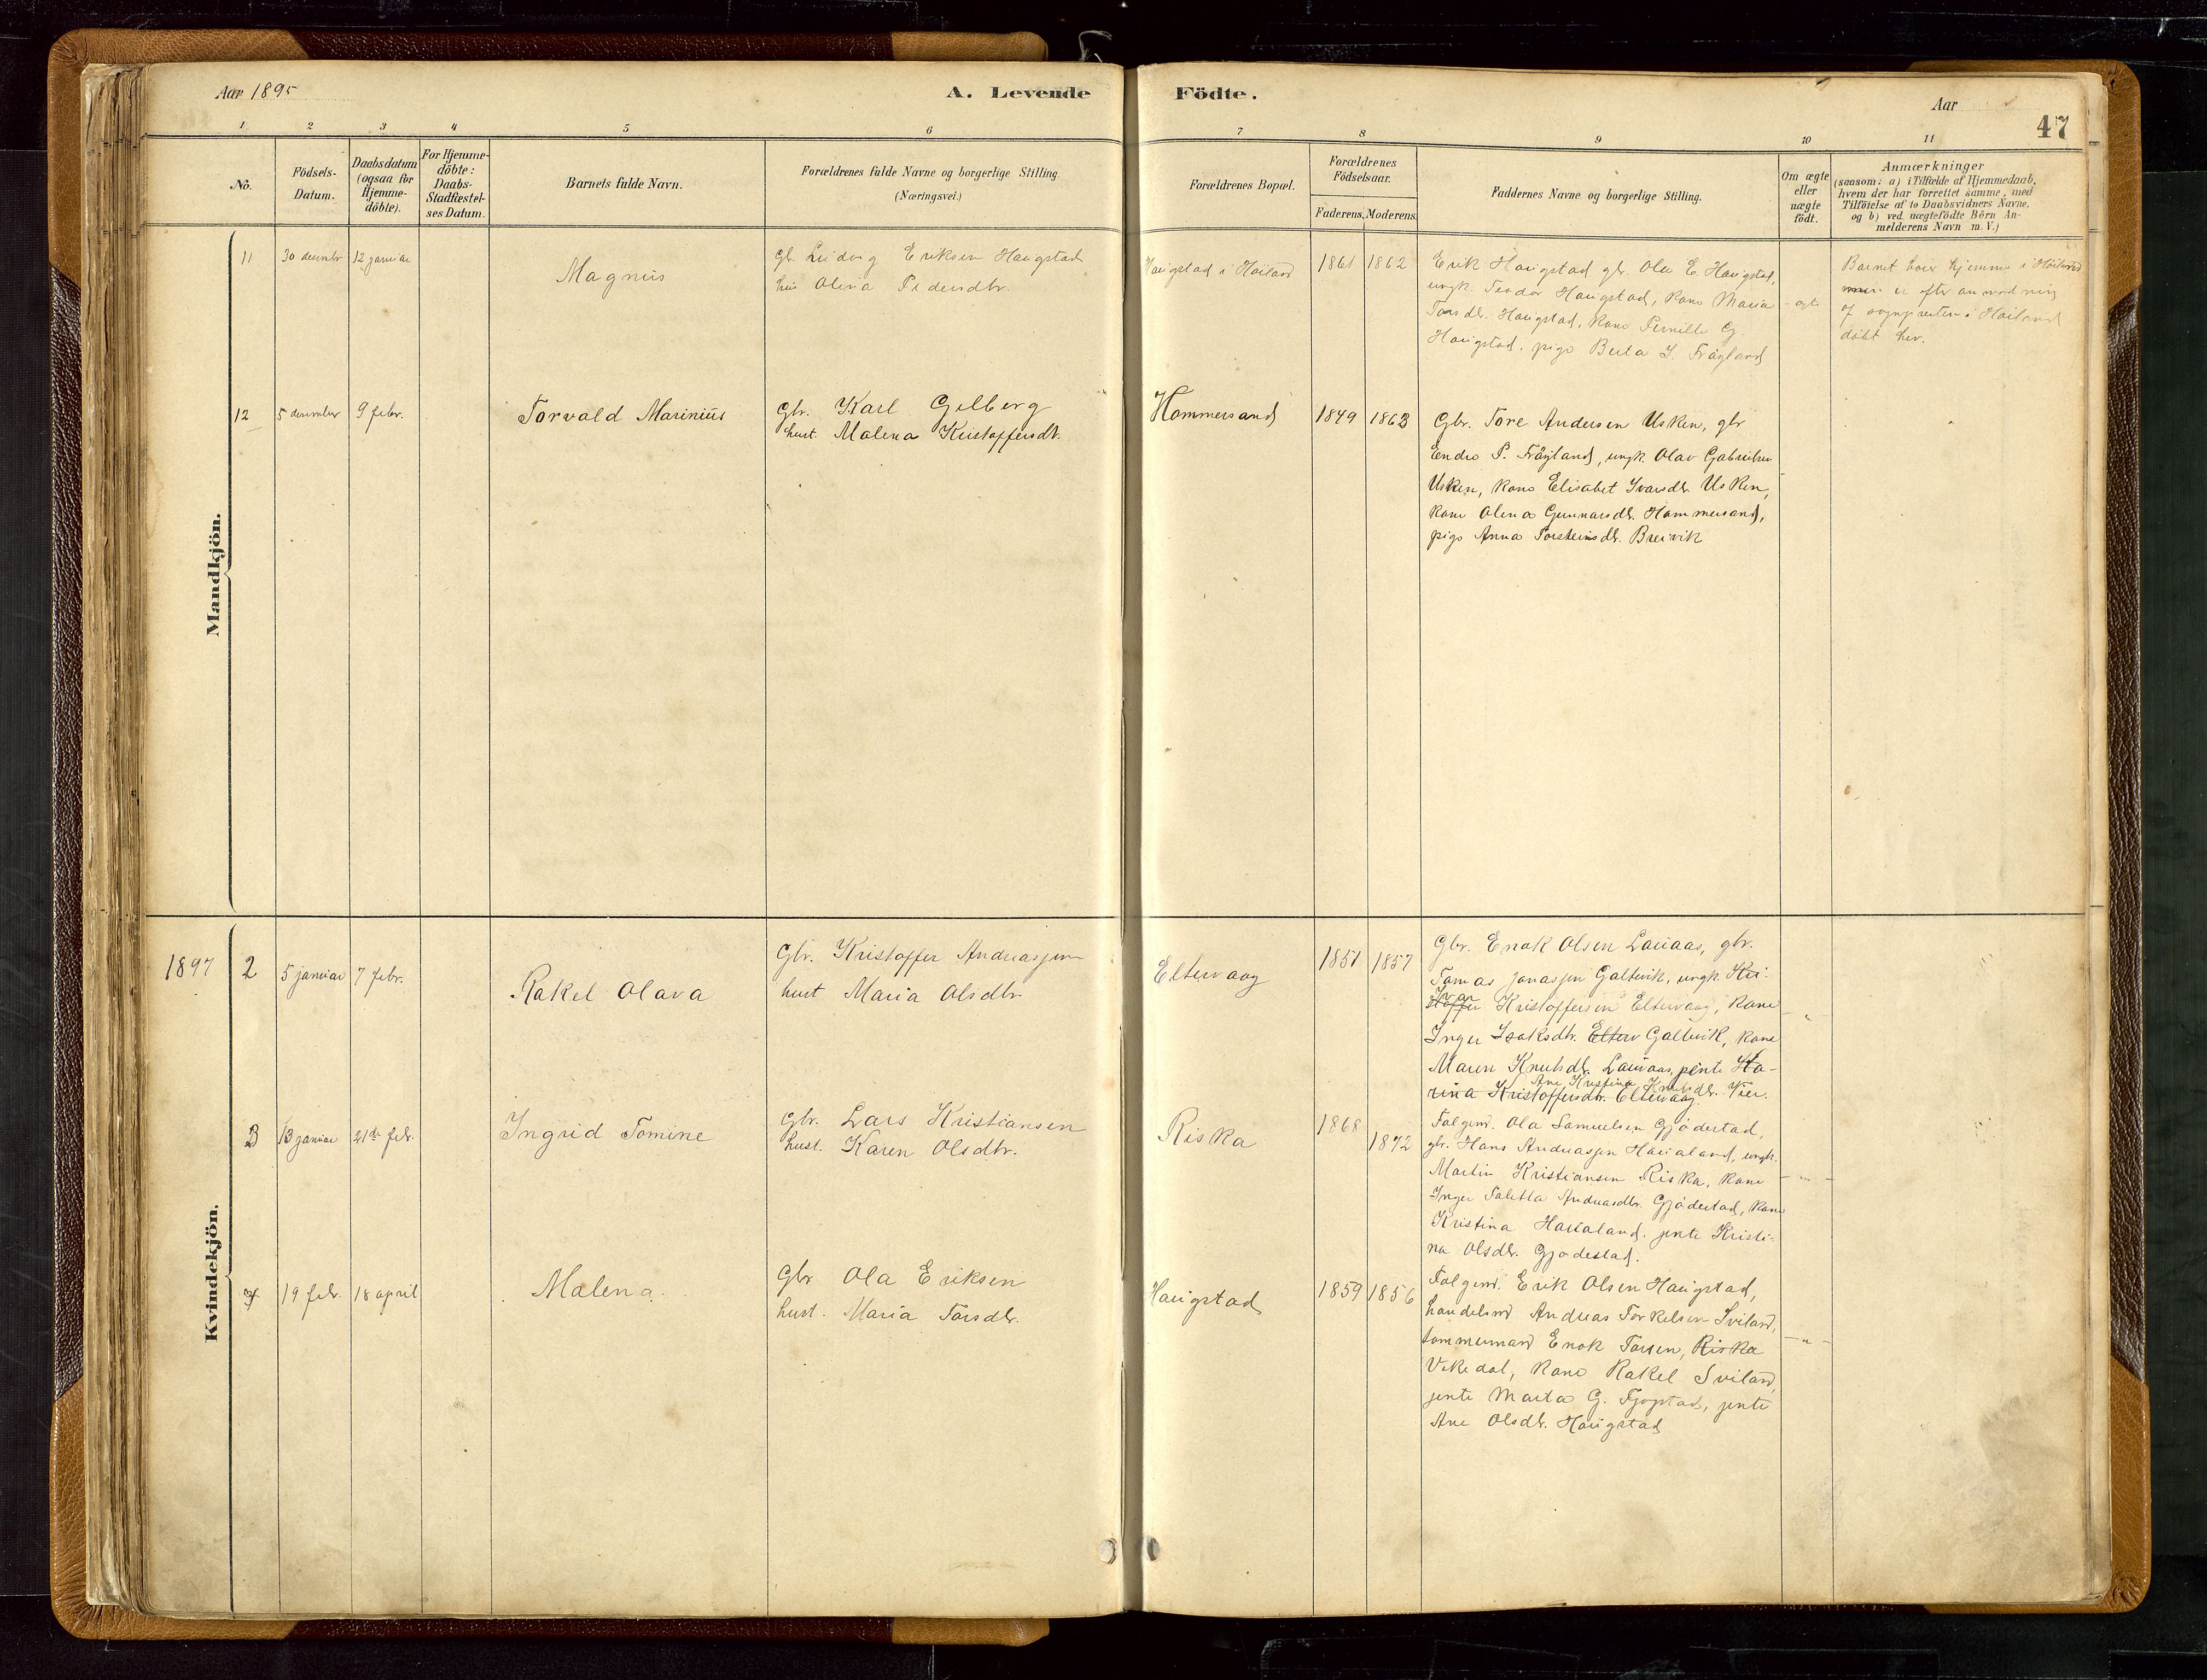 Aar 1895
A. Levende Födte.
Aar
47
1 2 3 4 5 6 7 8 9 10 11
No.
Födsels-Datum.
Daabsdatum (ogsaa for Hjemme-döbte).
For Hjemme-döbte: Daabs-Stadfæstel-ses Datum.
Barnets fulde Navn.
Forældrenes fulde Navne og borgerlige Stilling.
(Næringsvei.)
Forældrenes Bopæl.
Forældrenes Födselsaar.
Faderens. Moderens.
Faddernes Navne og borgerlige Stilling.
Om ægte eller uægte födt.
Anmærkninger
(saasom: a) i Tilfælde af Hjemmedaab,
hvem der har forrettet samme, med
Tilföielse af to Daabsvidners Navne,
og b) ved uægtefödte Börn An-
melderens Navn m. V.)
Mandkjön.
11 30 desembr 12 januar
Magnus
gbr. Ludvig Eriksen Haugstad
hus Olena Pedersdtr.
Haugstad i Höiland
1861 1862
Erik Haugstad gbr. Ola E. Haugstad,
ungk. Teodor Haugstad, kone Maria
Torsdtr. Haugstad, kone Pernille G.
Haugstad, pige Berta I. Frøyland
ægte
Barnet hører hjemme i Höiland
er efter anmodning
af sognepresten i Höiland
döbt her.
12 5 desember 9 febr.
Torvald Marinius
Gbr. Karl Gelberg
hust. Malena Kristoffersdt.
Hommersand
1849 1863
Gbr. Tore Andersen Usken, gbr
Endre P. Fröyland, ungk. Olav Gabrielsen
Usken, kone Elisabet Ivarsdtr. Usken,
kone Olena Gunnarsdtr. Hommersand,
pige Anna Torsteinsdtr. Breivik
1897
Kvindekjön.
2 5 januar 7 febr.
Rakel Olava
Gbr. Kristoffer Andreassen
hust Maria Olsdtr.
Eltervaag
1851 1857
Gbr. Enok Olsen Lauaas, gbr.
Tomas Jonassen Galtevik, ungk. Kri-
Ivar
stoffer Kristoffersen Eltervaag, kone
Inger Isaksdtr. Elterv Galtevik, kone
Maren Knutsdtr. Lauaas, jente Ka-
Ane Kristina Knutsdtr. Vier.
rina Kristoffersdtr. Eltervaag
"
3 13 januar 21de febr.
Ingrid Tomine
Gbr. Lars Kristiansen
hust. Karen Olsdtr.
Riska
1868 1872
Folgemd. Ola Samuelsen Gjödestad,
gbr. Hans Andreassen Haualand, ungk.
Martin Kristiansen Riska, kone
Inger Taletta Andreasdtr. Gjödestad, kone
Kristina Haualand, jente Kristi-
na Olsdtr. Gjödestad.
"
4 19 febr. 18 april
Malena.
Gbr Ola Eriksen
hust. Maria Torsdtr.
Haugstad
1859 1856
Folgemd. Erik Olsen Haugstad,
handelsmd Andreas Torkelsen Sviland,
tommermand Enok Torsen, Riska
Vikedal, kone Rakel Sviland,
jente Marta G. Fjogstad, jente
Ane Olsdtr. Haugstad
"